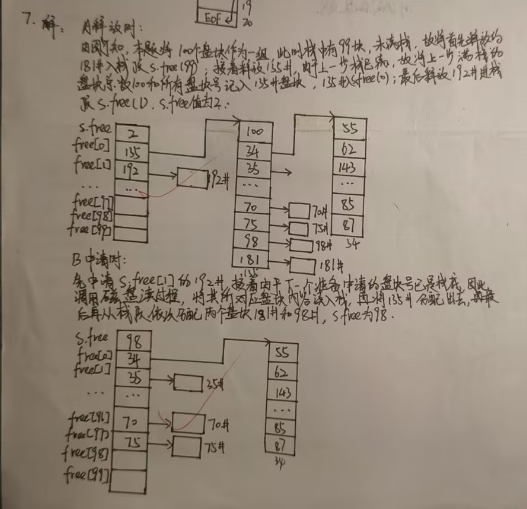 19
Eof
20
7. 解: A释放时:
由图可知,本题将100个盘块作为一组,此时栈中有99块,未满栈,故将首先释放的
181#入栈顶 s.free(99);接着释放135#,由于上一步栈已满,故将上一步满栈的
盘块总数100和所有盘块号记入135#盘块,135#入s.free(0);最后释放192#进栈
顶 s.free(1). s.free值为2.
s.free 2
free[0] 135
free[1] 192 192#
... ...
free[97]
free[98]
free[99]
100
34
35
...
70 70#
75 75#
98 98#
181 181#
135
55
62
143
...
85
87
34
B申请时:
先申请 s.free[1]的192#,接着由于下一个准备申请的盘块号已是栈底,因此
调用磁盘读过程,将其所对应盘块内容读入栈,再将135#分配出去,最
后再从栈顶依次分配两个盘块181#和98#, s.free为98.
s.free 98
free[0] 34
free[1] 35 35#
... ...
free[96] 70 70#
free[97] 75 75#
free[98]
free[99]
55
62
143
...
85
87
34